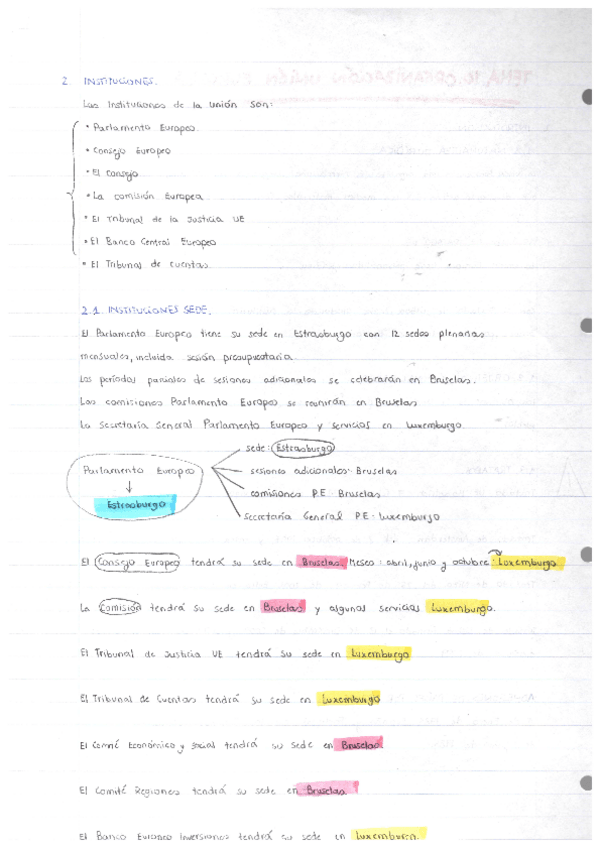 2 INSTITUCIONES.
Las Instituciones de la unión son:
• Parlamento Europeo.
• Consejo Europeo
• El Consejo
• La comisión Europea
• El Tribunal de la Justicia UE
• El Banco Central Europeo
• El Tribunal de cuentas.
2.1. INSTITUCIONES SEDE.
El Parlamento Europeo tiene su sede en Estrasburgo con 12 sedos plenarias
mensuales, incluida sesión presupuestaria.
Los períodos parciales de sesiones adicionales se celebrarán en Bruselas.
Las comisiones Parlamento Europeo se reunirán en Bruselas
La Secretaría General Parlamento Europeo y servicios en Luxemburgo.
sede: Estrasburgo
Parlamento Europeo
sesiones adicionales: Bruselas
comisiones P.E: Bruselas
Estrasburgo
secretaría General P.E: Luxemburgo
El Consejo Europeo tendrá su sede en Bruselas. Meses: abril, junio y octubre: Luxemburgo
La Comisión tendrá su sede en Bruselas y algunos servicios Luxemburgo.
El Tribunal de Justicia UE tendrá su sede en Luxemburgo
El Tribunal de Cuentas tendrá su sede en Luxemburgo
El Comité Económico y Social tendrá su sede en Bruselas
El Comité Regiones tendrá su sede en Bruselas
El Banco Europeo Inversiones tendrá su sede en Luxemburgo.